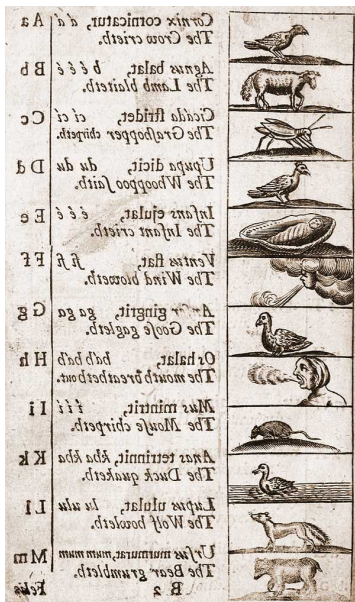 Cornix cornicatur, á á A a
The Crow crieth.
Agnus balat, b é é é B b
The Lamb blaiteth.
Cicáda ſtridet, cí cí C c
The Graſhopper chirpeth.
Upupa dicit, du du D d
The Whooppoo ſaith.
Infans ejulat, é é é E e
The Infant crieth.
Ventus flat, fi fi F f
The Wind bloweth.
Anſer gingrit, ga ga G g
The Gooſe gagleth.
Os halat, há'h há'h H h
The mouth breatheth out.
Mus mintrit, í í í I i
The Mouſe chirpeth.
Anas tetrinnit, kha kha K k
The Duck quaketh.
Lupus ululat, lu ulu L l
The Wolf howleth.
Urſus murmurat, mum mum M m
The Bear grumbleth.
B 2 Feles